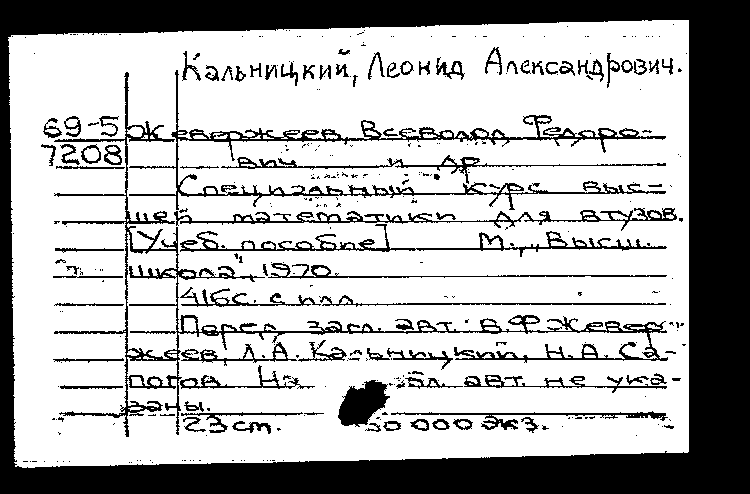 Кальницкий, Леонид Александрович.
69-5 Жевержеев, Всеволод Федоро-
7208 вич и др
Специальный курс выс-
шей математики для втузов.
[Учеб. пособие] М., „Высш.
школа", 1970.
416с. с илл.
Перед загл. авт.: В.Ф Жевер-
жеев, Л.А. Кальницкий, Н.А. Са-
погов. На бл. авт. не ука-
заны.
23 см. 50 000 экз.